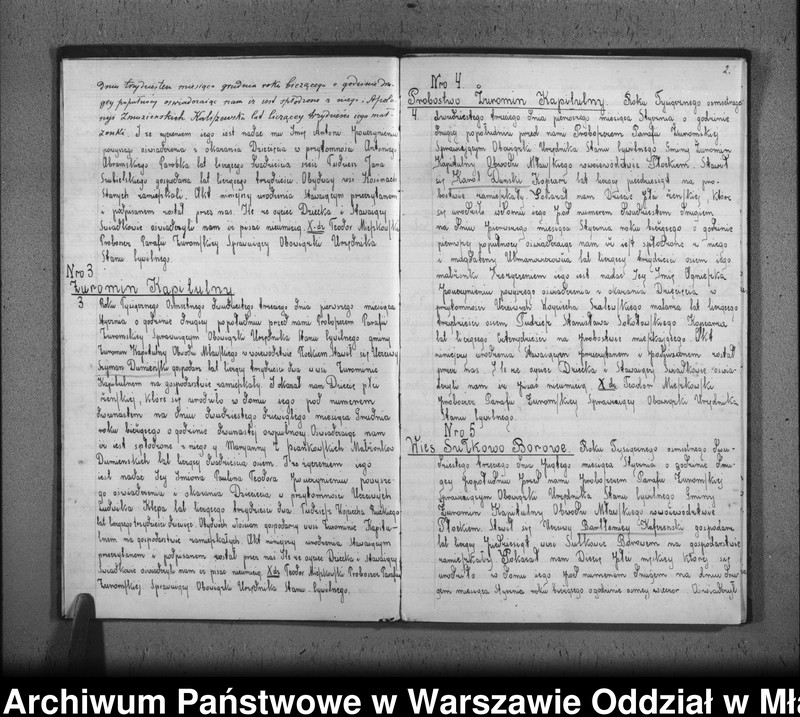 dnia trzydziestego miesiąca grudnia roku bieżącego o godzinie
popołudniu oświadczając nam iż jest spłodzone z niego i
lat liczącej trzydzieści jego mał
żonki. I że życzeniem jego jest nadać mu Imię Antoni Po uczynieniu
powyżej oświadczenia i okazania Dziecięcia w przytomności Antoniego
Abramskiego Parobka lat liczącego dwadzieścia sześć Tudzież Jana
gospodarza lat liczącego trzydzieści. Obydwaj wsi
zamieszkali. Akt niniejszy urodzenia Stawającym przeczytanym
i podpisanem został przez nas. Iż ze ojciec Dziecka i Stawający
Świadkowie oświadczyli nam iż pisać nieumieją X dz Teodor Mięskowski
Proboszcz Parafii Żuromski Sprawujący Obowiązki Urzędnika
Stanu Cywilnego.
Nro 3
Żuromin Kapitulny
3 Roku Tysiącznego Ośmsetnego dwudziestego trzeciego dnia pierwszego miesiąca
Stycznia o godzinie drugiej popołudniu przed nami Proboszczem Parafii
Żuromskiej Sprawującym Obowiązki Urzędnika Stanu Cywilnego gminy
Żuromin Kapitulny Obwodu Mławskiego w wojewodztwie Płockiem Stawił się Uczciwy
Szymon Dumieński gospodarz lat liczący trzydzieści dwa w wsi Żurominie
Kapitulnem na gospodarstwie zamieszkały. I okazał nam Dziecię płci
żeńskiej, które się urodziło w Domu jego pod numerem
dwunastem na dniu dwudziestego dziewiątego miesiąca Grudnia
roku bieżącego o godzinie dwunastej w południe. Oświadczając nam
iż jest spłodzone z niego y Maryanny z Piankowskich Małżonków
Dumienskich lat liczącej dwadzieścia osiem. I że życzeniem jego
jest nadać Jey Imiona Paulina Teodora Po uczynieniu powyższe
go oświadczenia i okazania Dziecięcia w przytomności Uczciwych
Ludwika Klepa lat liczącego trzydzieści dwa. Tudzież Wojciecha
lat liczącego trzydzieści dwóch. Obydwóch włościan gospodarzy w wsi Żurominie Kapitu-
lnem na gospodarstwie zamieszkałych. Akt niniejszy urodzenia Stawającym
przeczytanem i podpisanem został przez nas Iż ze ojciec Dziecka i Stawający
Świadkowie oświadczyli nam iż pisać nieumieją X dz Teodor Mięskowski Proboszcz Parafii
Żuromskiej Sprawujący Obowiązki Urzędnika Stanu Cywilnego.
2.
Nro 4.
Probostwo Żuromin Kapitulny. Roku Tysiącznego ośmsetnego
4 dwudziestego trzeciego dnia pierwszego miesiąca Stycznia o godzinie
drugiej popołudniu przed nami Proboszczem Parafii Żuromskiej
Sprawującym Obowiązki Urzędnika Stanu Cywilnego Gminy Żuromin
Kapitulny Obwodu Mławskiego w wojewodztwie Płockiem. Stawił
się Karol Dański Kopiarz lat liczący piedziesiąt na pro-
bostwie zamieszkały. I okazał nam Dziecię Płci żeńskiej, które
się urodziło w Domu jego pod numerem dwudziestem drugiem
na dniu Pierwszego miesiąca Stycznia roku bieżącego o godzinie
pierwszej popołnocy oświadczając nam iż jest spłodzone z niego
i Magdaleny lat liczącej trzydzieści osiem jego
małżonki I że życzeniem jego jest nadać Jey Imię Agnieszka
Po uczynieniu powyżej oświadczenia i okazania Dziecięcia w
przytomności Uczciwych Wojciecha Szalewskiego malarza lat liczącego
trzydzieści osiem Tudzież Stanisława Sokołowskiego Kopiarza
lat liczącego czterydzieści na probostwie mieszkającego Akt
niniejszy urodzenia Stawającym przeczytanem i podpisanem został
przez nas. I że ze ojciec Dziecka i Stawający Świadkowie oświad-
czyli nam iż pisać nieumieją. X dz Teodor Mięskowski
Proboszcz Parafii Żuromskiej Sprawujący Obowiązki Urzędnika
Stanu Cywilnego.
Nro 5
Wieś Sułkowo Borowe. Roku Tysiącznego ośmsetnego Dwu-
dziestego trzeciego dnia Piątego miesiąca Stycznia o godzinie Dru-
giey Popołudniu Przed nami Proboszczem Parafii Żuromskiej
Sprawującym Obowiązki Urzędnika Stanu Cywilnego Gminy
Żuromin Kapitulny Obwodu Mławskiego w wojewodztwie
Płockiem. Stawił się Uczciwy Bartłomiey gospodarz
lat liczący Piedziesiąt w wsi Sułkowo Borowem na gospodarstwie
zamieszkały I okazał nam Dziecię Płci męskiey które się
urodziło w Domu jego pod numerem Drugiem na dniu Dru-
giem miesiąca Stycznia roku bieżącego o godzinie osmey wieczor Oświadczył
Archiwum Państwowe w Warszawie Oddział w